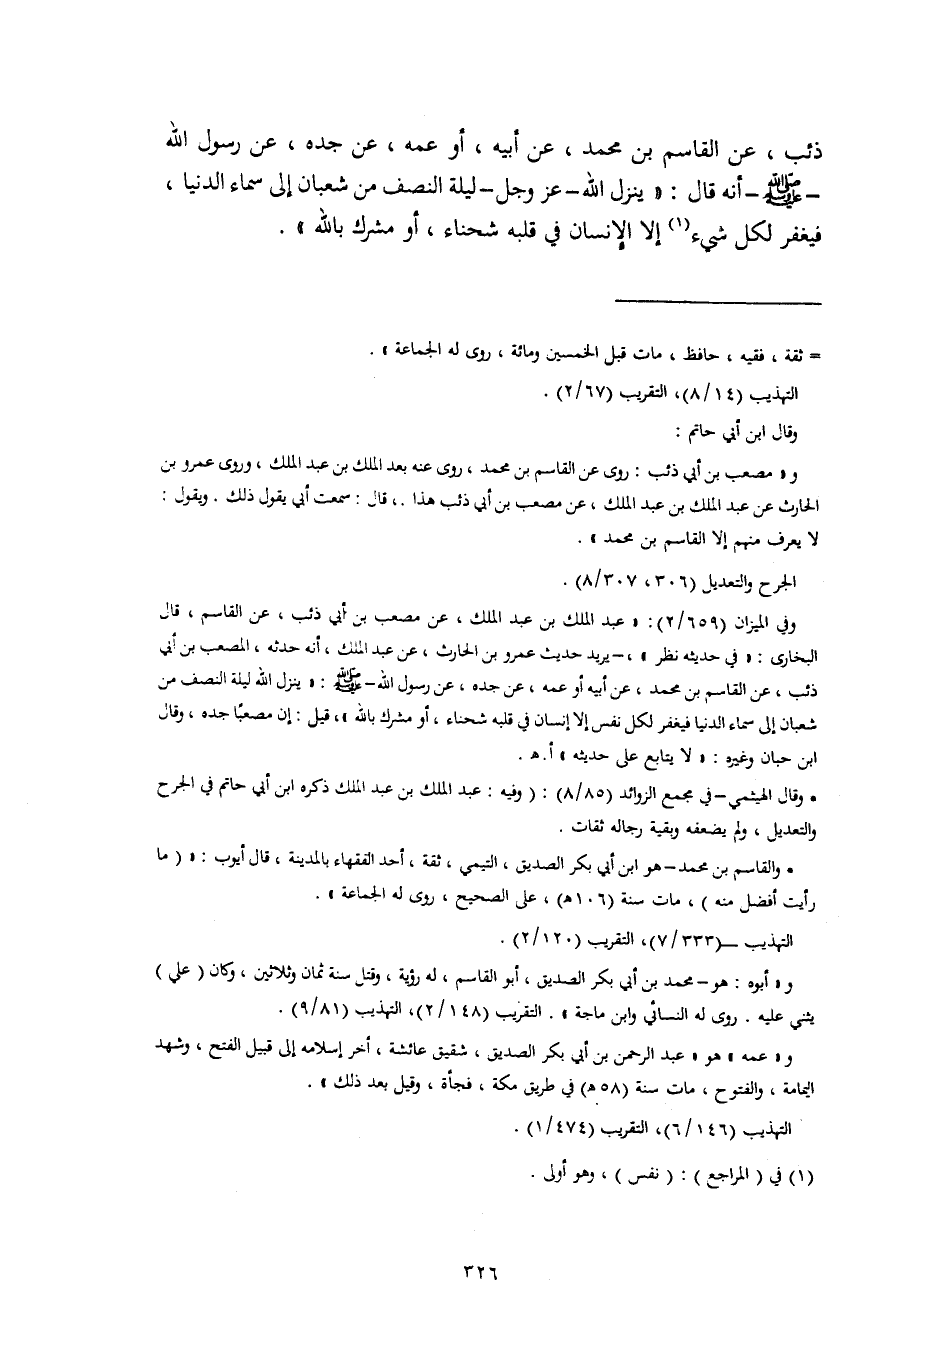 ذئب ، عن القاسم بن محمد ، عن أبيه ، أو عمه ، عن جده ، عن رسول الله
–ﷺ– أنه قال : « ينزل الله–عز وجل–ليلة النصف من شعبان إلى سماء الدنيا ،
فيغفر لكل شيء(١) إلا الإنسان في قلبه شحناء ، أو مشرك بالله » .
= ثقة ، فقيه ، حافظ ، مات قبل الخمسين ومائة ، روى له الجماعة » .
التهذيب (٨/١٤)، التقريب (٢/٦٧) .
وقال ابن أبي حاتم :
و « مصعب بن أبي ذئب : روى عن القاسم بن محمد ، روى عنه بعد الملك بن عبد الملك ، وروى عمرو بن
الحارث عن عبد الملك بن عبد الملك ، عن مصعب بن أبي ذئب هذا .، قال : سمعت أبي يقول ذلك . ويقول :
لا يعرف منهم إلا القاسم بن محمد » .
الجرح والتعديل (٣٠٦، ٨/٣٠٧) .
وفي الميزان (٢/٦٥٩): « عبد الملك بن عبد الملك ، عن مصعب بن أبي ذئب ، عن القاسم ، قال
البخارى : « في حديثه نظر » ،–يريد حديث عمرو بن الحارث ، عن عبد الملك ، أنه حدثه ، المصعب بن أبي
ذئب ، عن القاسم بن محمد ، عن أبيه أو عمه ، عن جده ، عن رسول الله–ﷺ : « ينزل الله ليلة النصف من
شعبان إلى سماء الدنيا فيغفر لكل نفس إلا إنسان في قلبه شحناء ، أو مشرك بالله »، قيل : إن مصعبًا جده ، وقال
ابن حبان وغيره : « لا يتابع على حديثه » أ.هـ .
• وقال الهيثمي–في مجمع الزوائد (٨/٨٥) : ( وفيه : عبد الملك بن عبد الملك ذكره ابن أبي حاتم في الجرح
والتعديل ، ولم يضعفه وبقية رجاله ثقات .
• والقاسم بن محمد–هو ابن أبي بكر الصديق ، التيمي ، ثقة ، أحد الفقهاء بالمدينة ، قال أيوب : « ( ما
رأيت أفضل منه ) ، مات سنة (١٠٦هـ) ، على الصحيح ، روى له الجماعة » .
التهذيب –(٧/٣٣٣)، التقريب (٢/١٢٠) .
و « أبوه : هو–محمد بن أبي بكر الصديق ، أبو القاسم ، له رؤية ، وقتل سنة ثمان وثلاثين ، وكان ( علي )
يثني عليه . روى له النسائي وابن ماجة » . التقريب (٢/١٤٨)، التهذيب (٩/٨١) .
و « عمه » هو « عبد الرحمن بن أبي بكر الصديق ، شقيق عائشة ، أخر إسلامه إلى قبيل الفتح ، وشهد
اليمامة ، والفتوح ، مات سنة (٥٨هـ) في طريق مكة ، فجأة ، وقيل بعد ذلك » .
التهذيب (٦/١٤٦)، التقريب (١/٤٧٤) .
(١) في ( المراجع ) : ( نفس ) ، وهو أولى .
٣٢٦